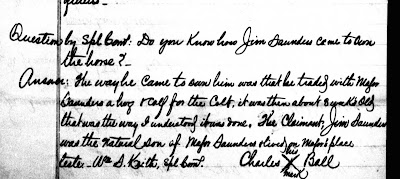 Question by Spl Com. Do you Know how Jim Saunders came to own
the horse? -
Answer: The way he came to own him was that he traded with Major
Saunders a hog & calf for the Colt, it was then about 3 weeks old
that was the way I understood it was done. The Claimant, Jim Saunders
was the natural son of Major Saunders & lived on Major's place
teste - Wm S. Keith, Spl Com. Charles his X mark Ball